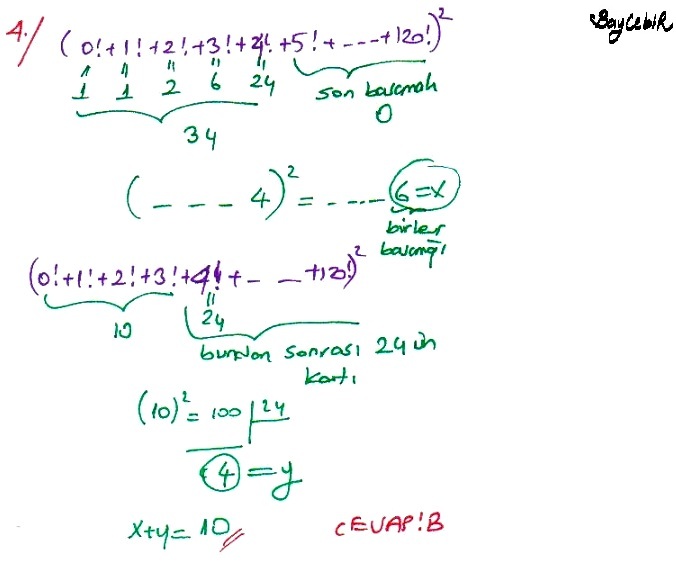 BayCebiR
4./ (0!+1!+2!+3!+4!+5!+---+120!)²
1 1 2 6 24 son basamak
0
34
(---4)² = ----- 6=x
birler
basamağı
(0!+1!+2!+3!+4!+- _ _+120!)²
10 24
bundan sonrası 24 ün
katı
(10)² = 100 | 24
4 = y
x+y= 10
CEVAP!B